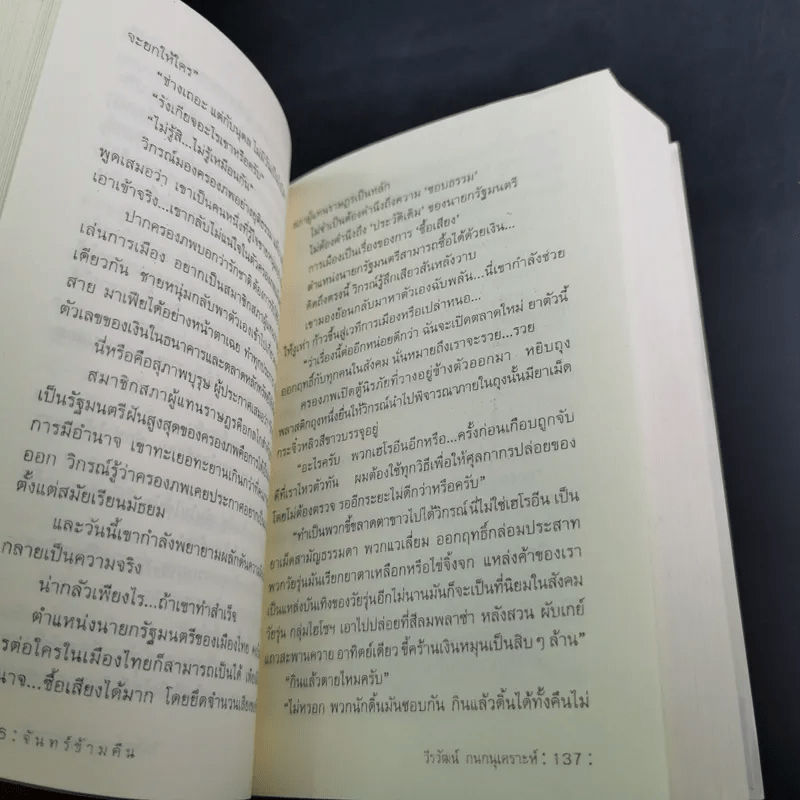 จะยกให้ใคร”
“ช่างเถอะ แต่กับนุดล
“รังเกียจอะไรเขาหรือครับ”
“ไม่รู้สิ...ไม่รู้เหมือนกัน”
วิกรณ์มองครองภพอย่าง
พูดเสมอว่า เขาเป็นคนหนึ่งที่
เอาเข้าจริง...เขากลับไม่แน่ใจใน
ปากครองภพบอกว่ารักชาติ
เล่นการเมือง อยากเป็นสมาชิกสภา
เดียวกัน ชายหนุ่มกลับพาตัวเอง
สาย มาเฟียได้อย่างหน้าตาเฉย
ตัวเลขของเงินในธนาคารและตลาดหลักทรัพย์
นี่หรือคือสุภาพบุรุษ ผู้ประกาศ
สมาชิกสภาผู้แทนราษฎรคือ
เป็นรัฐมนตรีฝันสูงสุดของครองภพคือการได้
การมีอำนาจ เขาทะเยอทะยานเกินกว่าที่
ออก วิกรณ์รู้ว่าครองภพเคยประกาศ
ตั้งแต่สมัยเรียนมัธยม
และวันนี้เขากำลังพยายามผลักดันความ
กลายเป็นความจริง
น่ากลัวเพียงไร...ถ้าเขาทำสำเร็จ
ตำแหน่งนายกรัฐมนตรีของเมืองไทย
รต่อใครในเมืองไทยก็สามารถเป็นได้
นาจ...ซื้อเสียงได้มาก โดยยึดจำนวน
6 : จันทร์ข้ามคืน
สภาผู้แทนราษฎรเป็นหลัก
ไม่จำเป็นต้องคำนึงถึงความ ‘ชอบธรรม’
ไม่ต้องคำนึงถึง ‘ประวัติเดิม’ ของนายกรัฐมนตรี
การเมืองเป็นเรื่องของการ ‘ซื้อเสียง’
ตำแหน่งนายกรัฐมนตรีสามารถซื้อได้ด้วยเงิน...
คิดถึงตรงนี้ วิกรณ์รู้สึกเสียวสันหลังวาบ
เขามองย้อนกลับมาหาตัวเองฉับพลัน...นี่เขากำลังช่วย
ให้งูเห่า ก้าวขึ้นสู่เวทีการเมืองหรือเปล่าหนอ...
“ว่าเรื่องนี้ต่ออีกหน่อยดีกว่า ฉันจะเปิดตลาดใหม่ ยาตัวนี้
ออกฤทธิ์กับทุกคนในสังคม นั่นหมายถึงเราจะรวย...รวย
ครองภพเปิดตู้นิรภัยที่วางอยู่ข้างตัวออกมา หยิบถุง
พลาสติกถุงหนึ่งยื่นให้วิกรณ์นำไปพิจารณาภายในถุงนั้นมียาเม็ด
กระจิ๋วหลิวสีขาวบรรจุอยู่
“อะไรครับ พวกเฮโรอีนอีกหรือ...ครั้งก่อนเกือบถูกจับ
ดีที่เราไหวตัวทัน ผมต้องใช้ทุกวิธีเพื่อให้ศุลกากรปล่อยของ
โดยไม่ต้องตรวจ รออีกระยะไม่ดีกว่าหรือครับ”
“ทำเป็นพวกขี้ขลาดตาขาวไปได้วิกรณ์นี่ไม่ใช่เฮโรอีน เป็น
ยาเม็ดสามัญธรรมดา พวกแวเลี่ยม ออกฤทธิ์กล่อมประสาท
พวกวัยรุ่นมันเรียกยาตาเหลือกหรือไข่จิ้งจก แหล่งค้าของเรา
เป็นแหล่งบันเทิงของวัยรุ่นอีกไม่นานมันก็จะเป็นที่นิยมในสังคม
วัยรุ่น กลุ่มไฮโซฯ เอาไปปล่อยที่สีลมพลาซ่า หลังสวน ผับเกย์
แถวสะพานควาย อาทิตย์เดียว ขี้คร้านเงินหมุนเป็นสิบ ๆ ล้าน”
“กินแล้วตายไหมครับ”
“ไม่หรอก พวกนักดิ้นมันชอบกัน กินแล้วดิ้นได้ทั้งคืนไม่
วีรวัฒน์ กนกนุเคราะห์ : 137 :